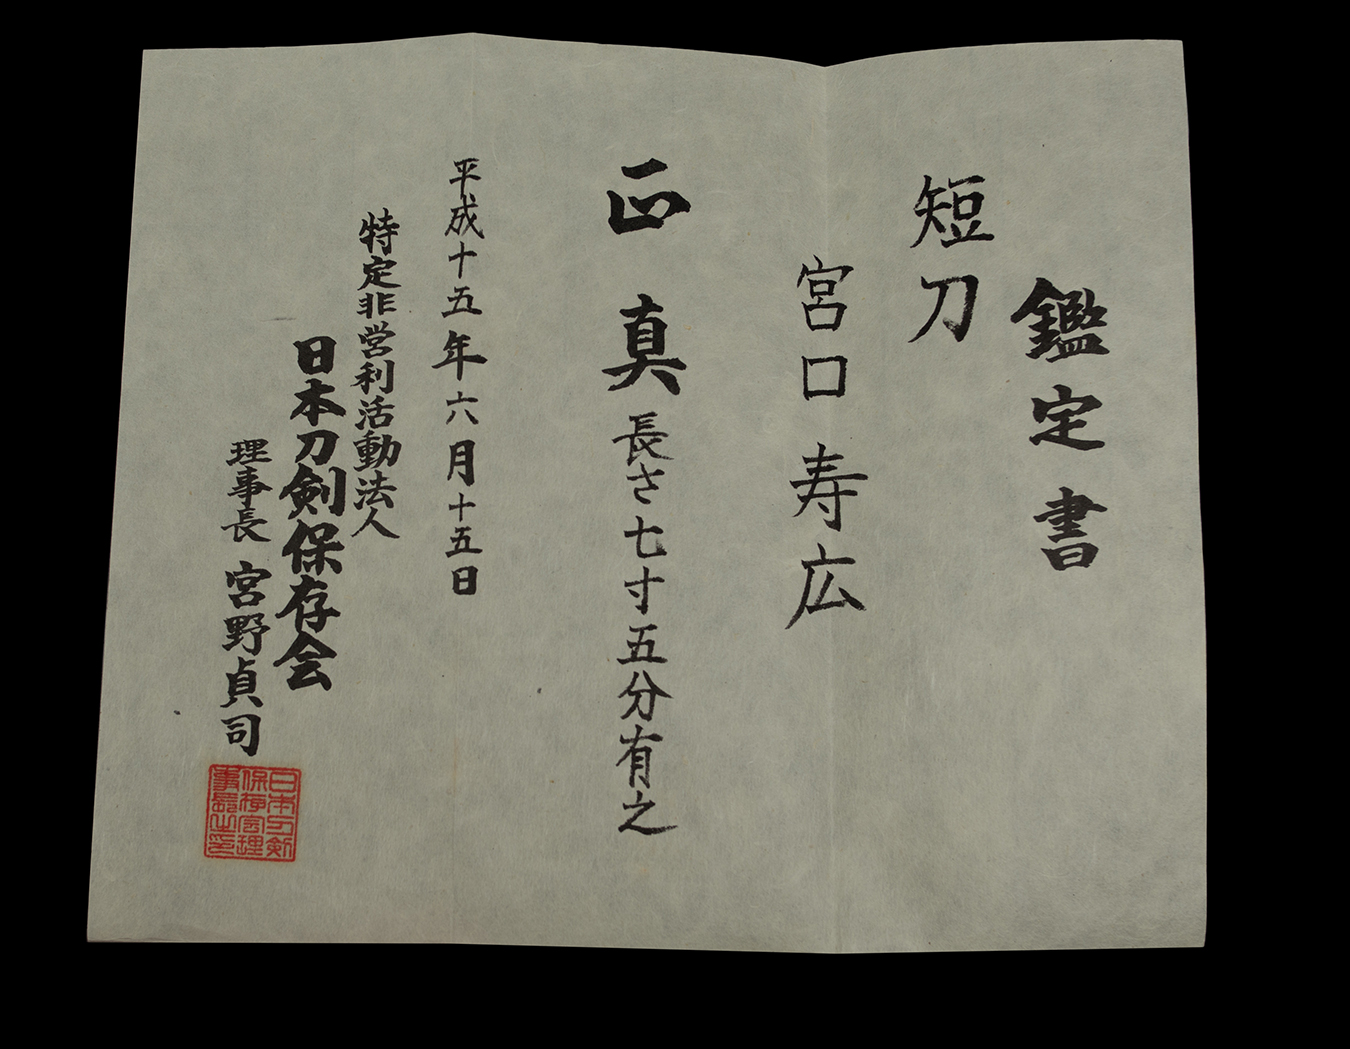 鑑定書
短刀
宮口寿広
正真 長さ七寸五分有之
平成十五年六月十五日
特定非営利活動法人
日本刀剣保存会
理事長 宮野貞司
日本刀剣
保存会理
事長之印